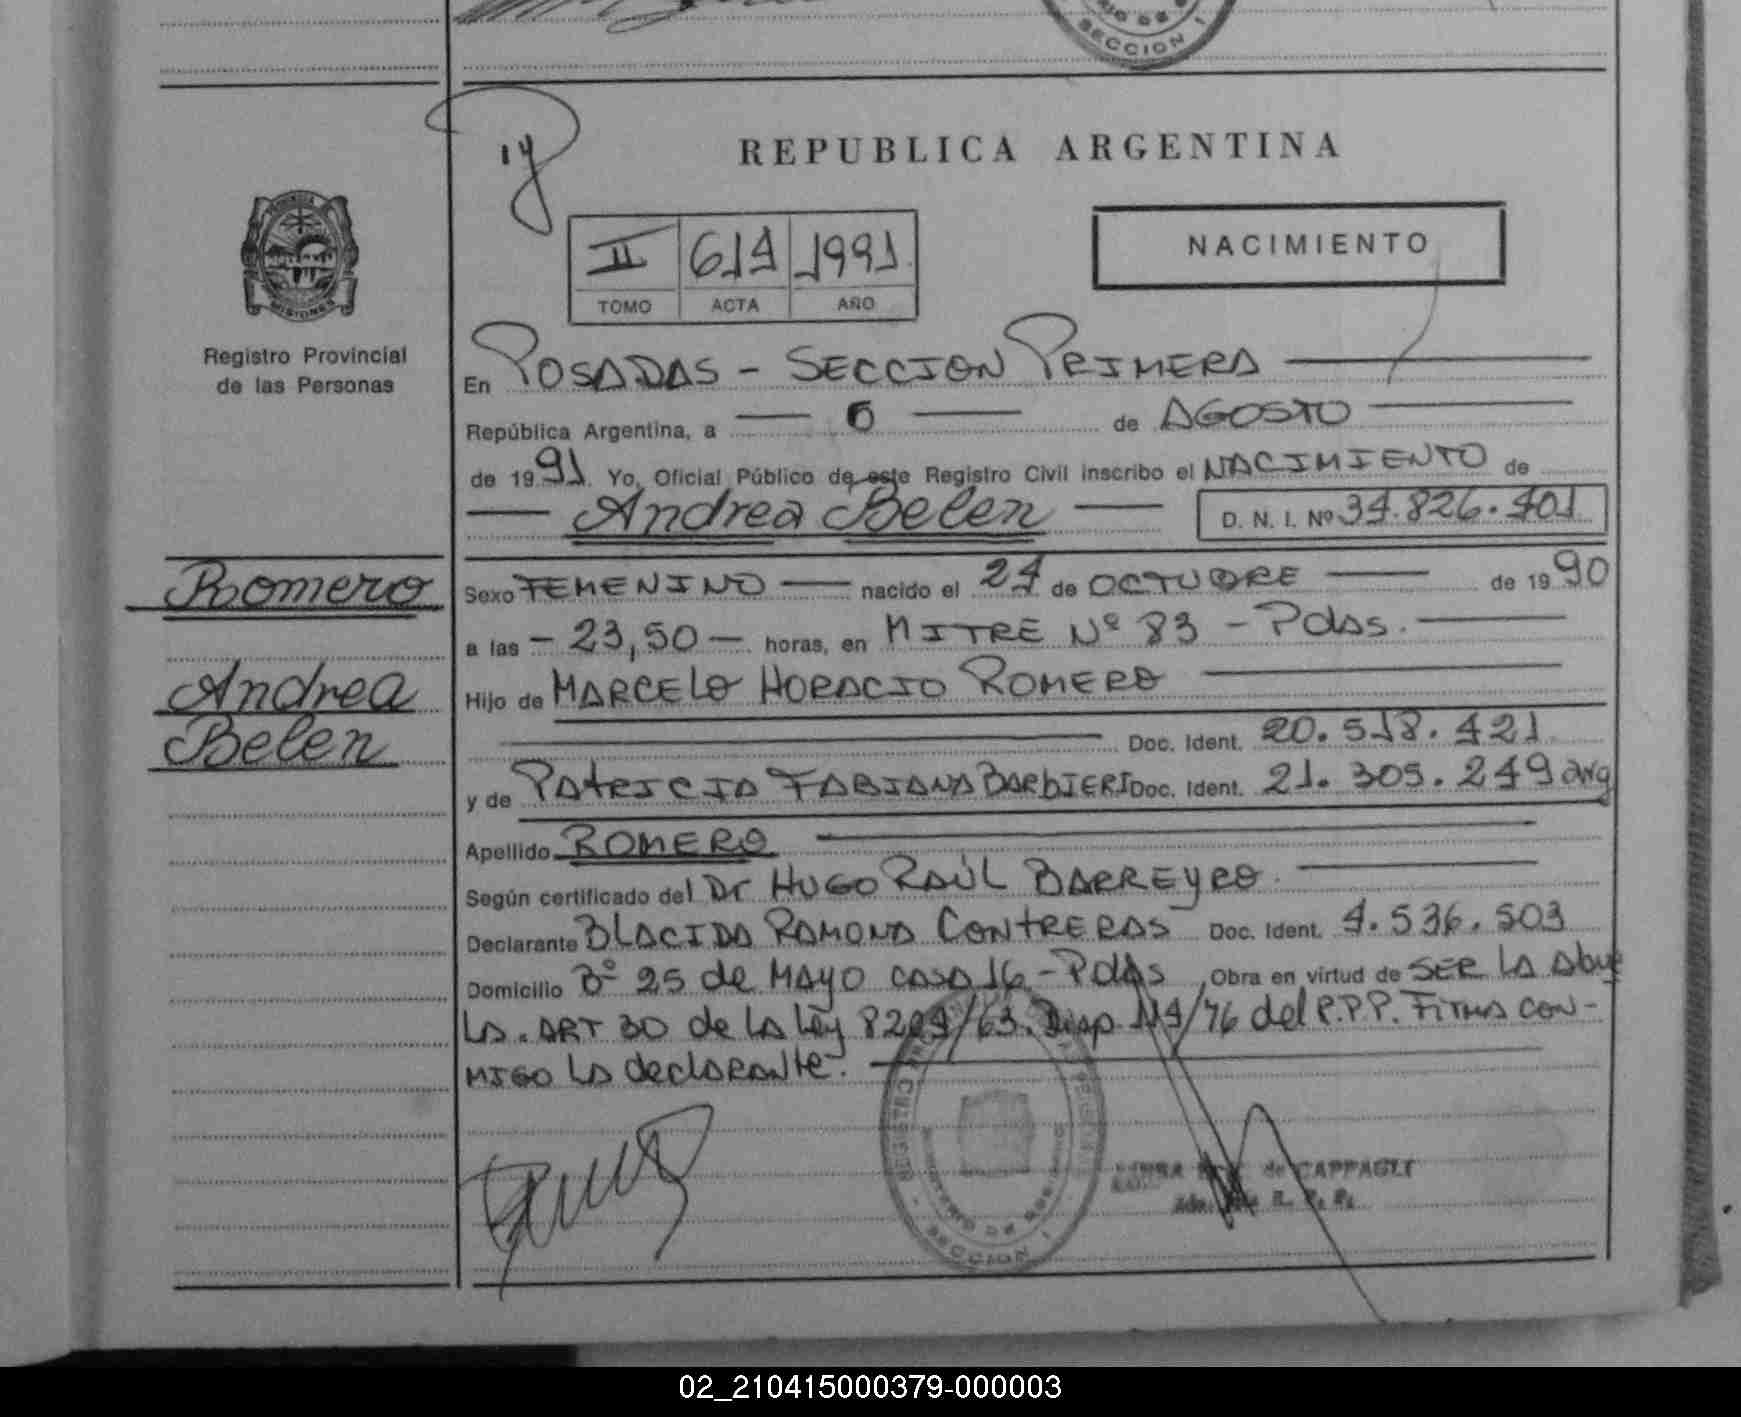 SECCION I
REPUBLICA ARGENTINA
NACIMIENTO
II 614 1991.
TOMO ACTA AÑO
MISIONES
Registro Provincial
de las Personas
En POSADAS - SECCION PRIMERA
República Argentina, a 6 de AGOSTO
de 1991. Yo, Oficial Público de este Registro Civil inscribo el NACIMIENTO de
Andrea Belen D. N. I. Nº 34.826.401
Romero
Andrea
Belen
Sexo FEMENINO nacido el 24 de OCTUBRE de 1990
a las - 23,50 - horas, en MITRE Nº 83 - Pdas.
Hijo de MARCELO HORACIO ROMERO
Doc. Ident. 20.518.421
y de PATRICIA FABIANA BARBIERI Doc. Ident. 21.305.249 arg
Apellido ROMERO
Según certificado del Dr HUGO RAÚL BARREYRO.
Declarante BLACIDA RAMONA CONTRERAS Doc. Ident. 4.536.503
Domicilio Bº 25 de MAYO CASA 16 - Pdas , Obra en virtud de SER LA Abue
LA. ART 30 de LA Ley 8204/63. Disp. 114/76 del R.P.P. FIRMA CON-
MIGO LA declarante.
de CAPPAGLI
SECCION I
02_210415000379-000003